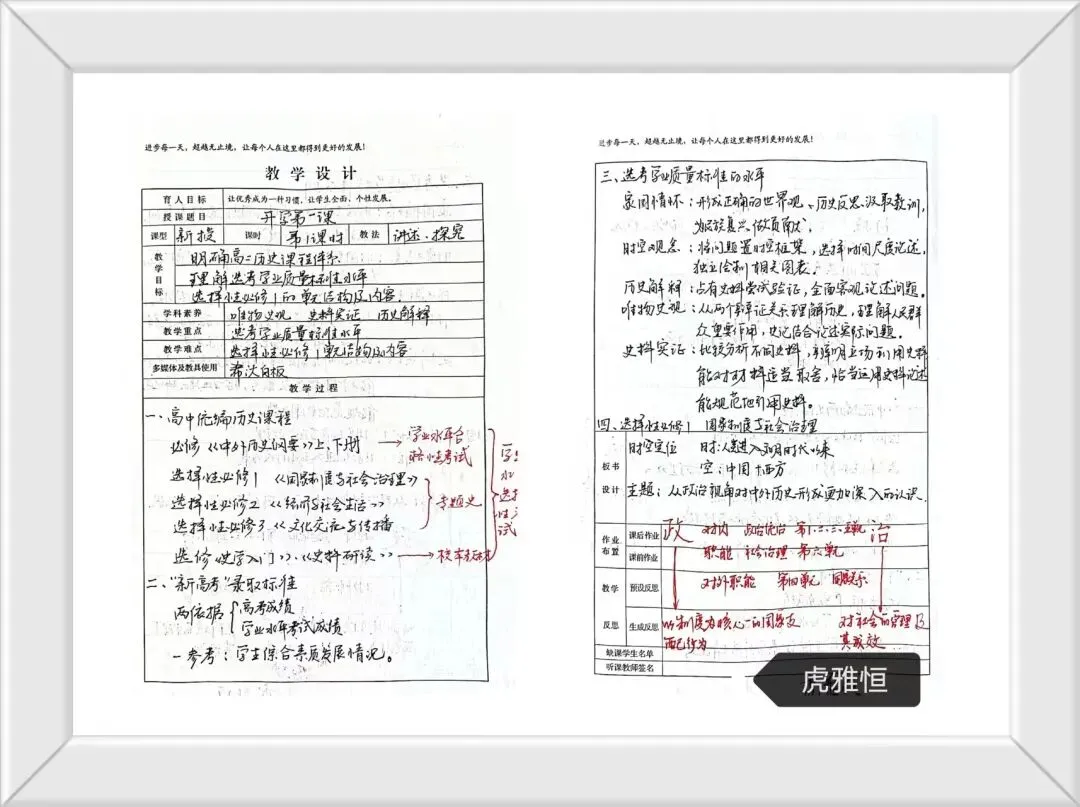 进步每一天，超越无止境，让每个人在这里都得到更好的发展！
教 学 设 计
育人目标 让优秀成为一种习惯，让学生全面、个性发展。
授课题目 开学第一课
课型 新授 课时 第1课时 教法 讲述、探究
教学目标 明确高二历史课程体系
理解选考学业质量标准水平
选择性必修1的单元结构及内容
学科素养 唯物史观 史料实证 历史解释
教学重点 选考学业质量标准水平
教学难点 选择性必修1单元结构及内容
多媒体及教具使用 希沃白板
教 学 过 程
一、高中统编历史课程
必修《中外历史纲要》上、下册 → 学业水平合格性考试
选择性必修1 《国家制度与社会治理》
选择性必修2《经济与社会生活》 专题史
选择性必修3《文化交流与传播》
选修《史学入门》、《史料研读》 → 校本
二、"新高考"录取标准
两依据 高考成绩
学业水平考试成绩
一参考：学生综合素质发展情况。
进步每一天，超越无止境，让每个人在这里都得到更好的发展！
三、选考学业质量标准的水平
家国情怀：形成正确的世界观、历史反思汲取教训，
为民族复兴做贡献。
时空观念：将问题置时空框架，选择时间尺度论述，
独立绘制相关图表。
历史解释：占有史料尝试验证，全面客观论述问题。
唯物史观：从两个辩证关系理解历史，理解人民群
众重要作用，史论结合论述实际问题。
史料实证：比较分析不同史料，辨明立场利用史料
能对材料适当取舍，恰当运用史料论述
能规范地引用史料。
四、选择性必修1 国家制度与社会治理
板书设计 时空定位 时：人类进入文明时代以来
空：中国+西方
主题：从政治视角对中外历史形成更加深入的认识
作业布置 课后作业 政 对内 政治统治 第一、二、三单元 治
课前作业 职能 社会治理 第六单元
教学 预设反思 对外职能 第四单元 国家关系
反思 生成反思 以制度为核心的国家政 对社会的管理及
其成效
缺课学生名单
听课教师签名
虎雅恒